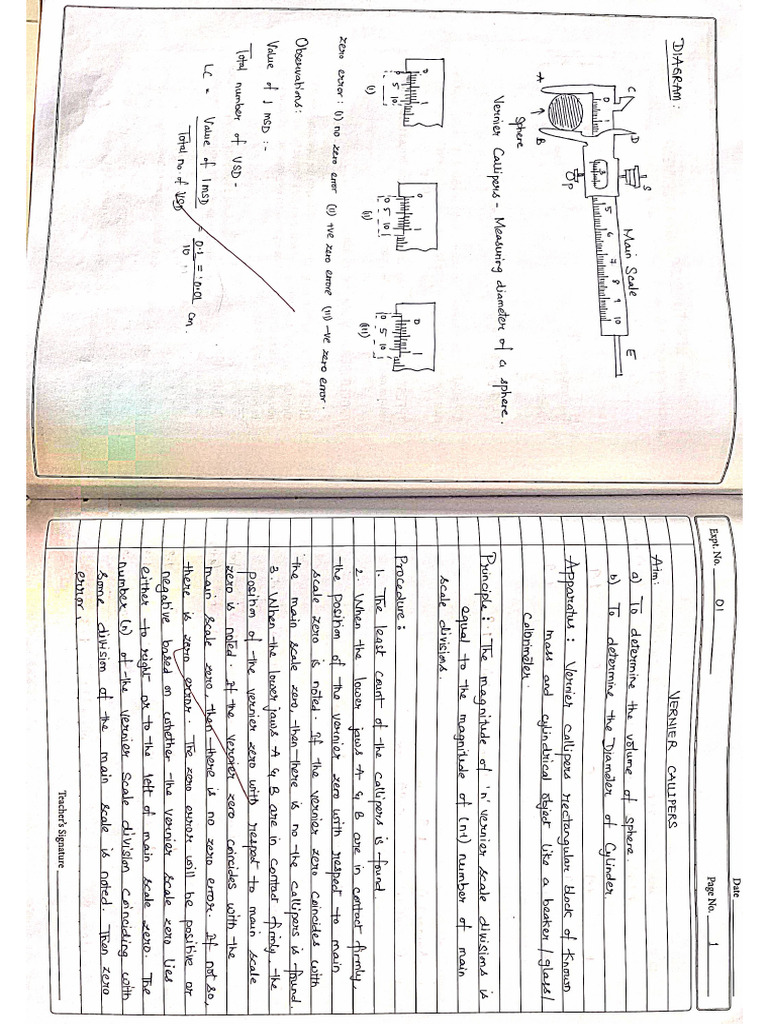 DIAGRAM:
C
D
S
Main Scale
E
0
1
3
5 6 7 8 9 10
A
B
P
Sphere
Vernier Callipers - Measuring diameter of a sphere.
0 1
0 5 10
(i)
0 1
0 5 10
(ii)
0 1
0 5 10
(iii)
zero error: (i) no zero error (ii) +ve zero errore (iii) -ve zero error.
Observations:
Value of 1 MSD :-
Total number of VSD -
LC = Value of 1 MSD / Total no. of VSD = 0.1 / 10 = 0.01 cm.
Date
Expt. No. 01
Page No. 1
VERNIER CALLIPERS
Aim:
a) To determine the volume of sphere.
b) To determine the Diameter of Cylinder
Apparatus: Vernier callipers rectangular block of known
mass and cylindrical object like a beaker/glass/
calorimeter.
Principle: The magnitude of 'n' vernier scale divisions is
equal to the magnitude of (n-1) number of main
scale divisions.
Procedure:
1. The least count of the callipers is found.
2. When the lower jaws A & B are in contact firmly,
the position of the vernier zero with respect to main
scale zero is noted. If the vernier zero coincides with
the main scale zero, then there is no the callipers is found.
3. When the lower jaws A & B are in contact firmly, the
position of the vernier zero with respect to main scale
zero is noted. If the vernier zero coincides with the
main scale zero, then there is no zero error. If not so,
there is zero error. The zero error will be positive or
negative based on whether the vernier scale zero lies
either to right or to the left of main scale zero. The
number (n) of the vernier scale division coinciding with
some division of the main scale is noted. Then zero
error,
Teacher's Signature